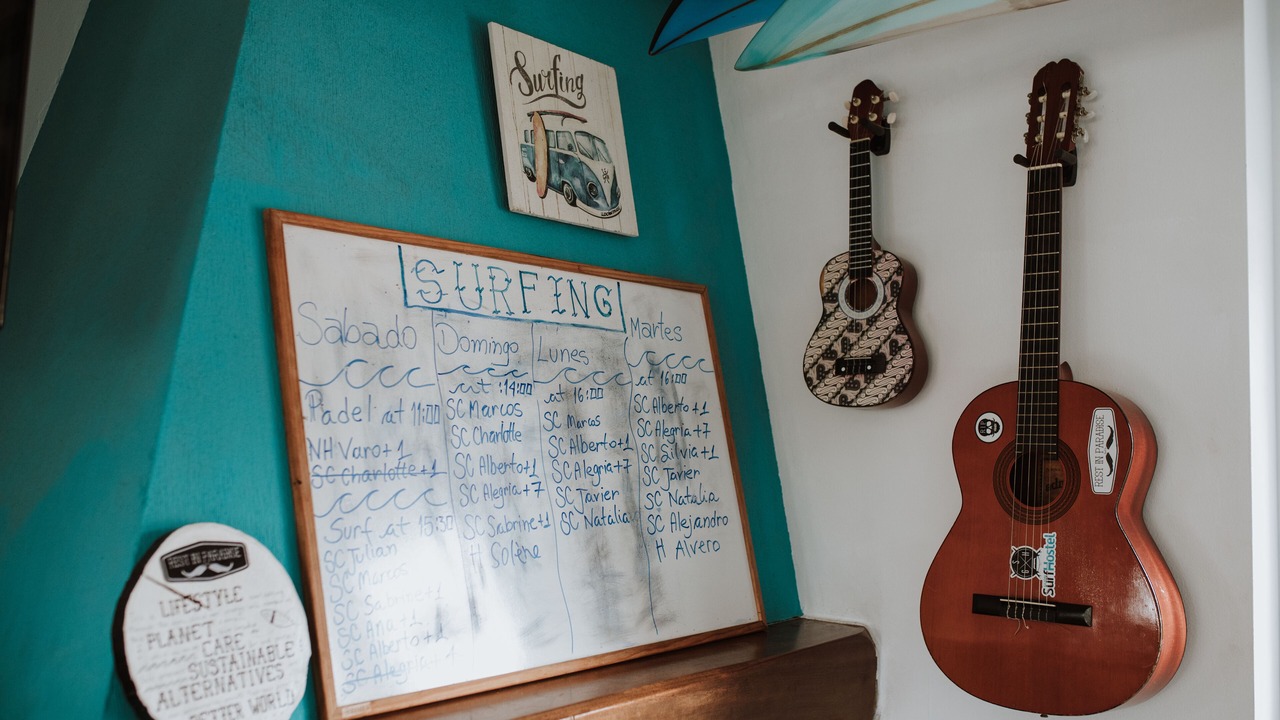 Surfing
SURFING
Sabado
Padel at 11:00
NH Varo+1
SC Charlotte+1
Surf at 15:30
SC Julian
SC Marcos
SC Sabrine+1
SC Ana+1
SC Alberto+1
SC Alegria+4
Domingo
at :14:00
SC Marcos
SC Charlotte
SC Alberto+1
SC Alegria+7
SC Sabrine+1
H Solène
Lunes
at 16:00
SC Marcos
SC Alberto+1
SC Alegria+7
SC Javier
SC Natalia
Martes
at 16:00
SC Alberto+1
SC Alegria+7
SC Silvia+1
SC Javier
SC Natalia
SC Alejandro
H Alvero
REST IN PARADISE
LIFESTYLE
PLANET
CARE
SUSTAINABLE
ALTERNATIVES
BETTER WORLD
REST IN PARADISE
SurfHostel